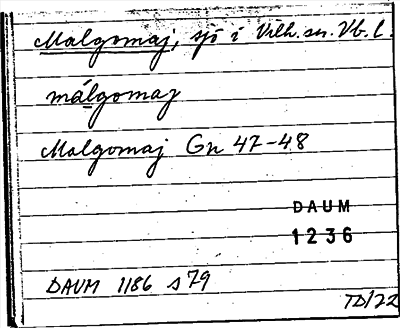 Malgomaj, sjö i Vilh. sn. Vb. l.
málgomaj
Malgomaj Gn 47-48
DAUM
1236
DAUM 1186 s 79
TD/22